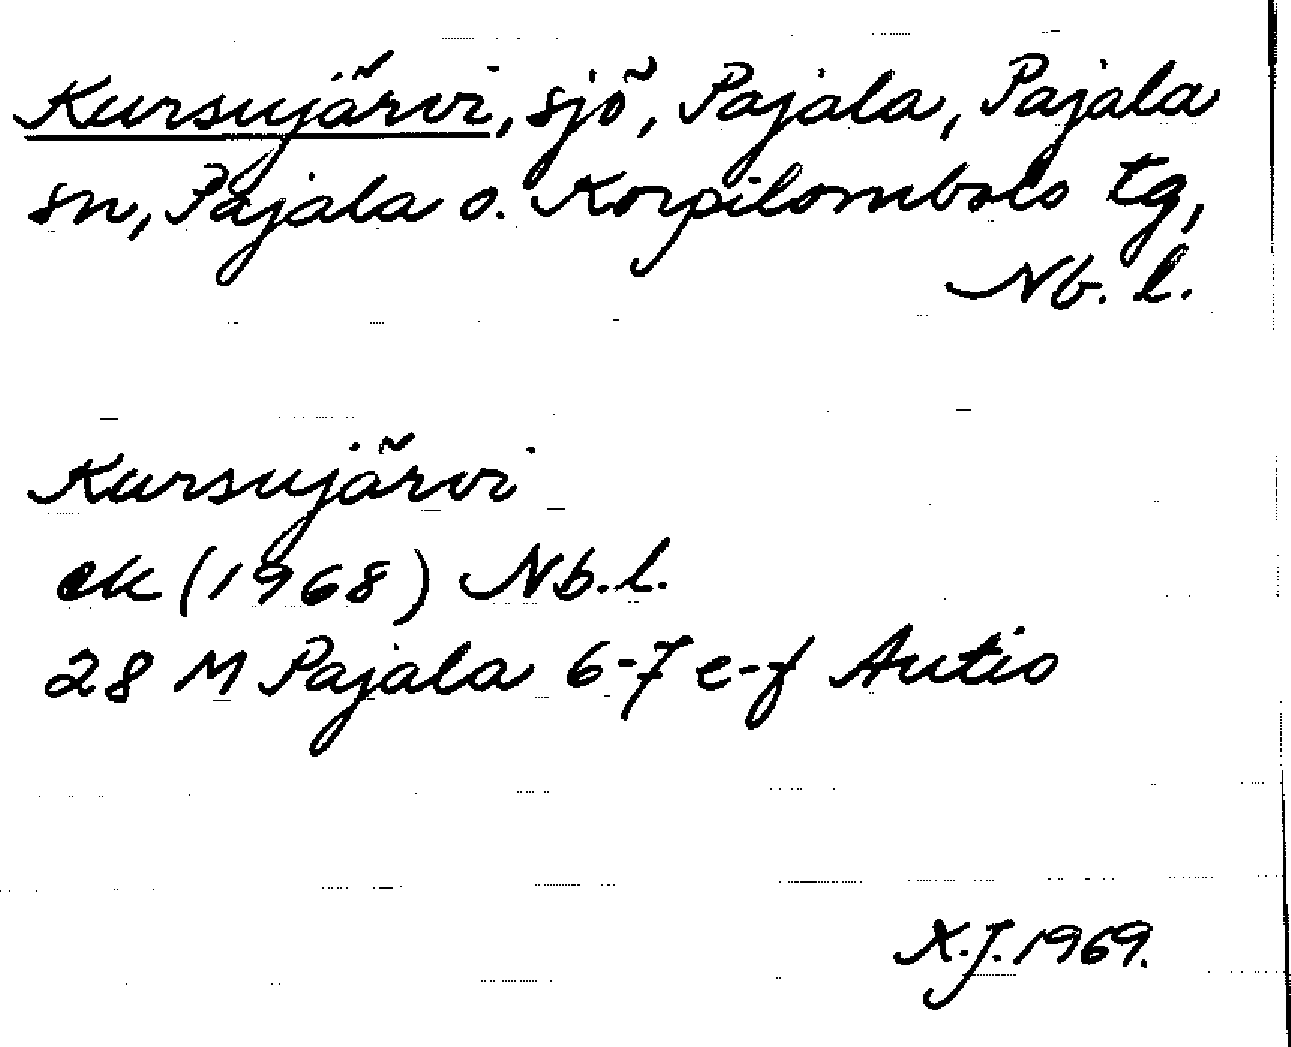 Kursujärvi, sjö, Pajala, Pajala
sn, Pajala o. Korpilombolo tg,
Nb. l.
Kursujärvi
ek (1968) Nb. l.
28 M Pajala 6-7 e-f Autio
K.J. 1969.